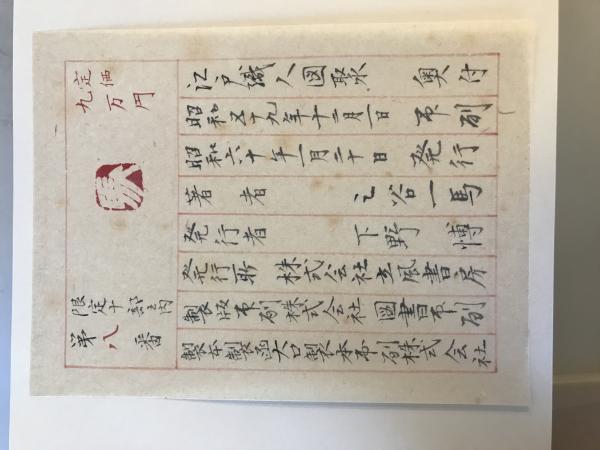 江戸職人図聚 奥付
昭和五十九年十二月一日 印刷
昭和六十年一月二十日 発行
著者 三谷一馬
発行者 下野博
発行所 株式会社立風書房
製版印刷株式会社 図書印刷
製本製函大口製本印刷株式会社
定価
九万円
限定十部之内
第八番